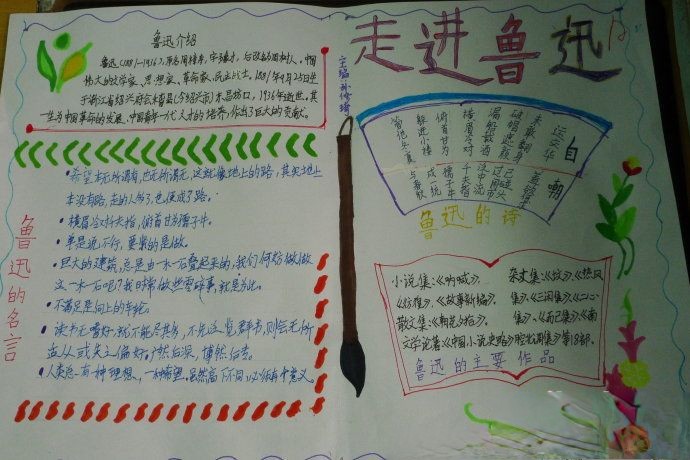 走进鲁迅
主编：孙修琦
鲁迅介绍
鲁迅(1881-1936),原名周樟寿,字豫才,后改名周树人,中国
伟大的文学家、思想家、革命家、民主战士。1881年9月25日生
于浙江省绍兴府会稽县(今绍兴市)东昌坊口,1936年逝世。其
一生为中国革命的发展、中国青年一代人才的培养,作出了巨大的贡献。
鲁迅的名言
•希望本无所谓有,也无所谓无,这就像地上的路,其实地上
本没有路,走的人多了,也便成了路。
•横眉冷对千夫指,俯首甘为孺子牛。
•单是说不行,要紧的是做。
•巨大的建筑,总是由一木一石叠起来的,我们何妨做做
这一木一石呢?我时常做些零碎事,就是为此。
•不满足是向上的车轮。
•读书无嗜好,就不能尽其多,不先泛览群书,则会无所
适从或失之偏好。广然后深,博然后专。
•人类总有一种理想,一种希望。虽然高下不同,必须有个意义。
自嘲
运交华盖欲何求
未敢翻身已碰头
破帽遮颜过闹市
漏船载酒泛中流
横眉冷对千夫指
俯首甘为孺子牛
躲进小楼成一统
管他冬夏与春秋
鲁迅的诗
小说集:《呐喊》、 杂文集:《坟》、《热风
《彷徨》、《故事新编》、 集》、《三闲集》、《二心
散文集:《朝花夕拾》、 集》、《而己集》、《南
文学论著《中国小说史略》腔北调集》等18部。
鲁迅的主要作品